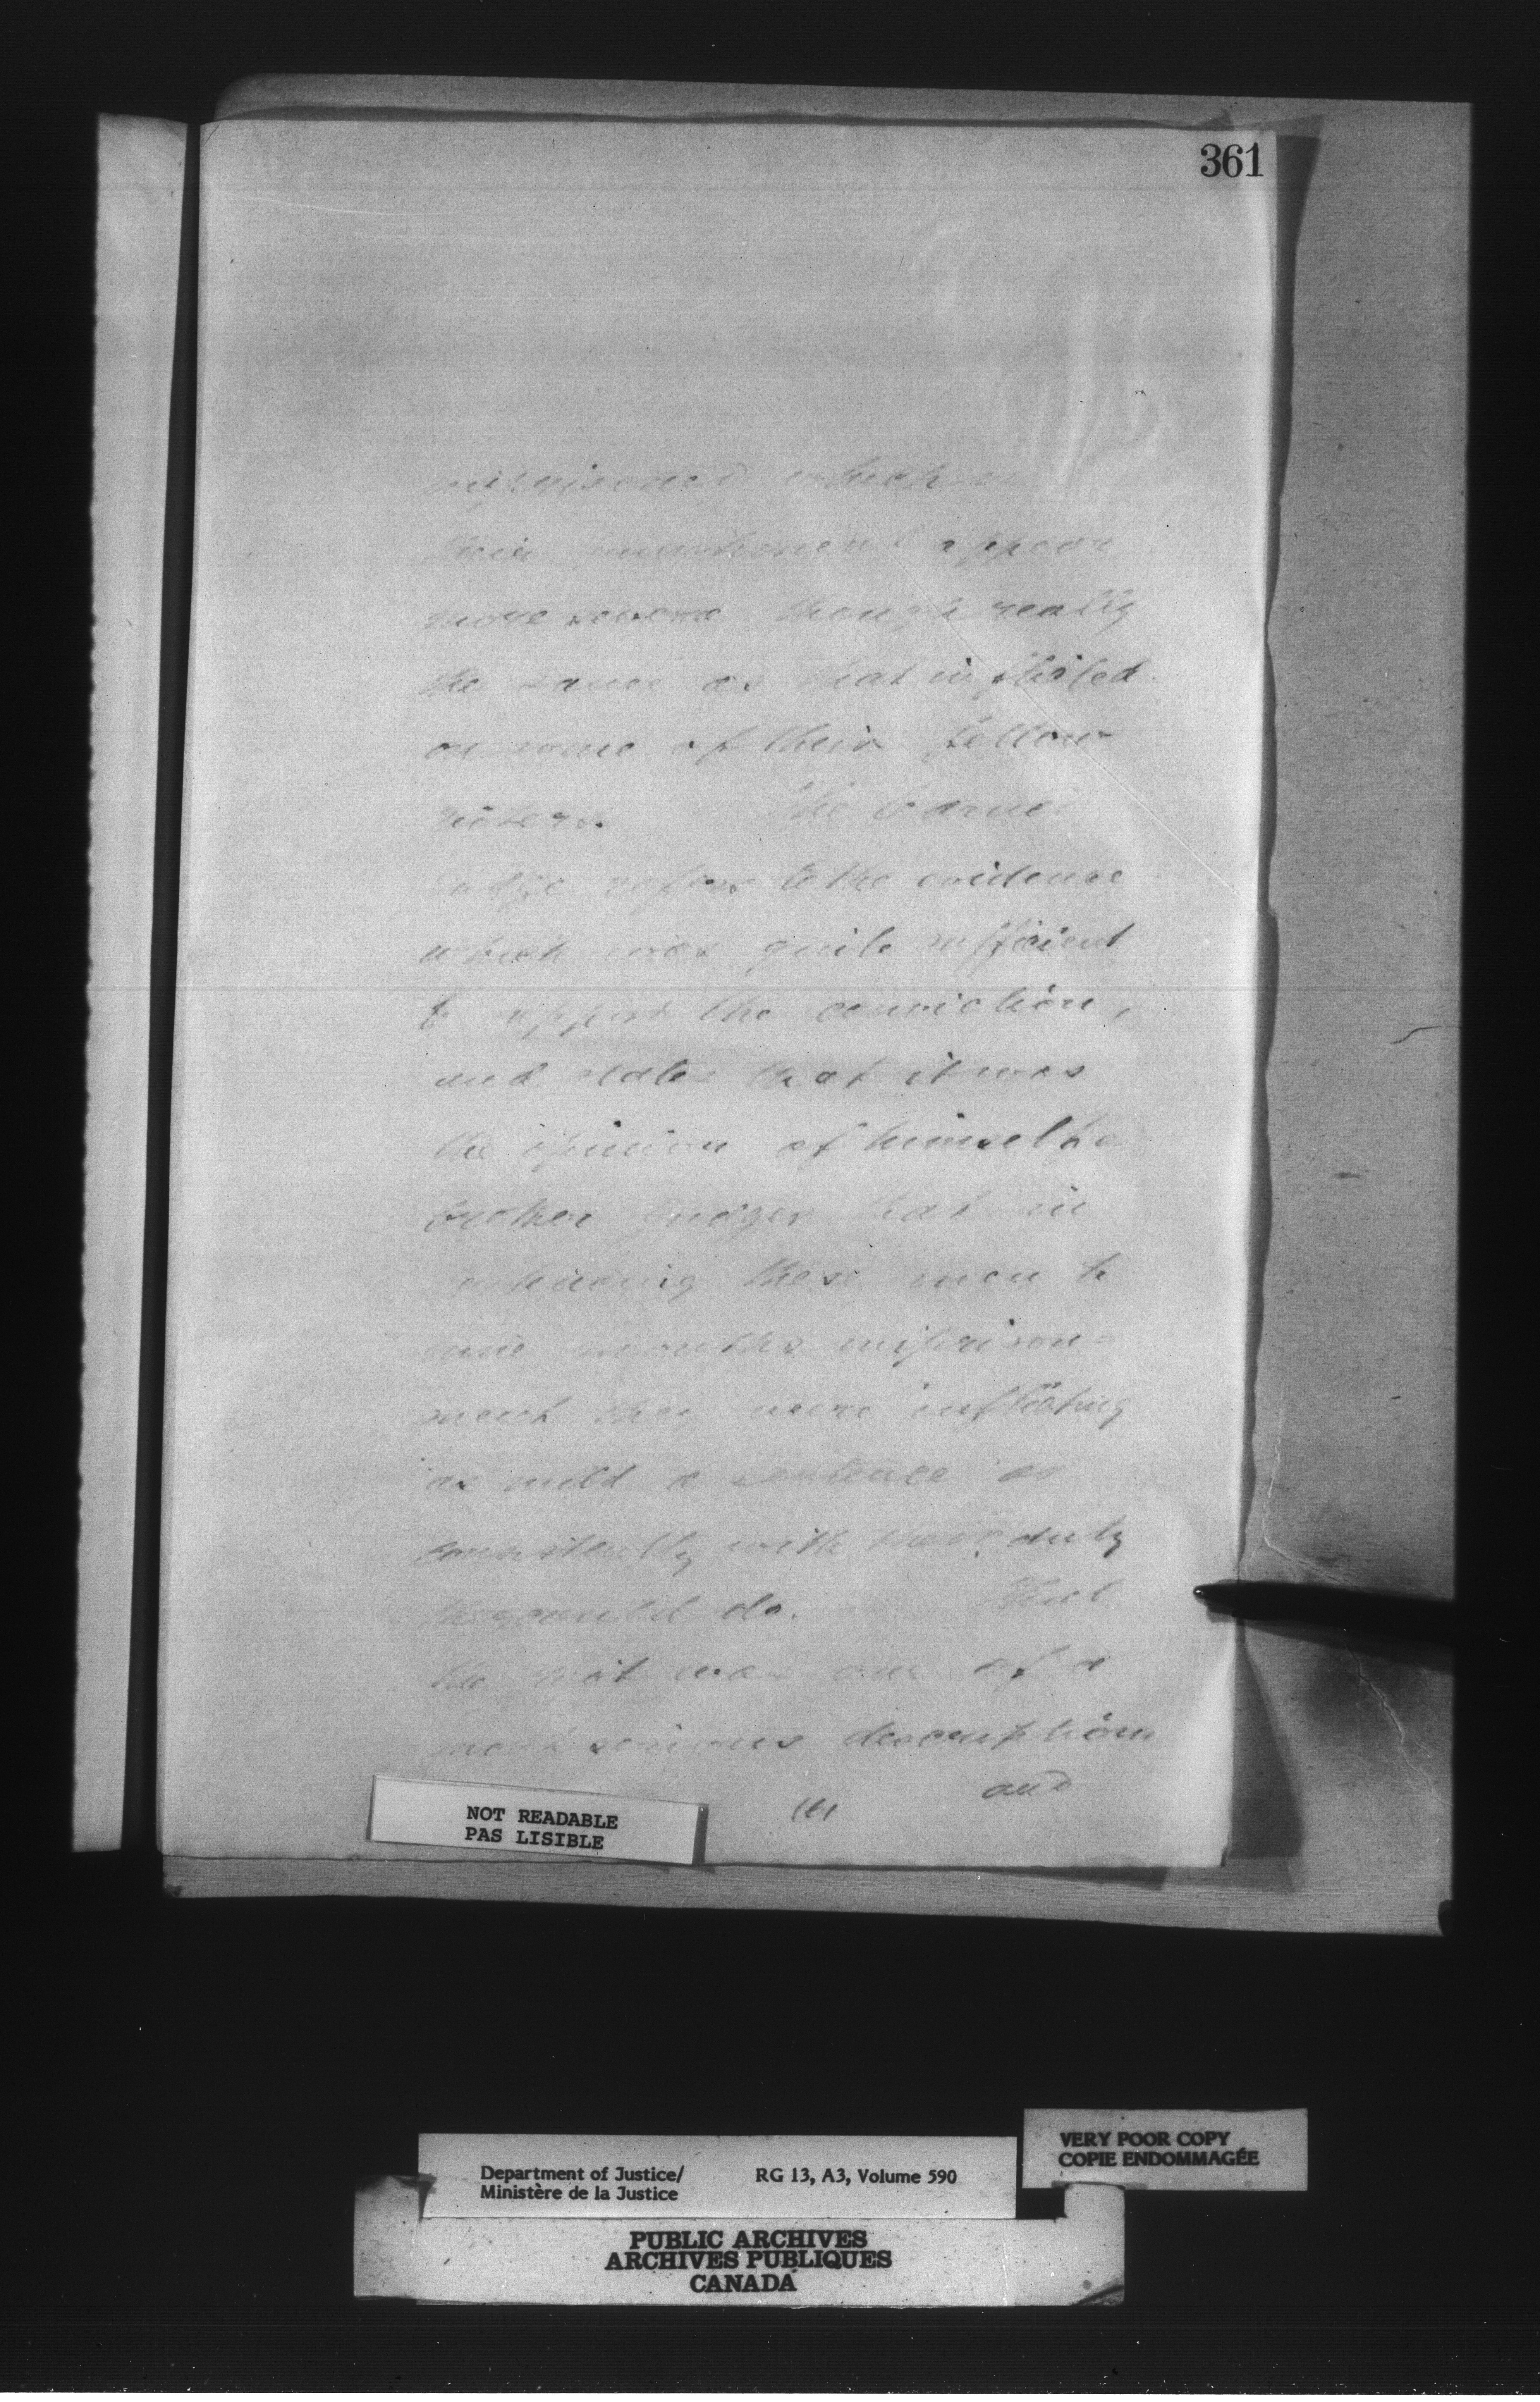 361
which
their punishment appear
more severe though really
the same as that inflicted
on some of their fellow
rioters. The learned
judge refers to the evidence
which was quite sufficient
to support the conviction,
and states that it was
the opinion of himself &
brother judges that in
sentencing these men to
nine months imprison-
ment they were inflicting
as mild a sentence as
consistently with their duty
they could do. That
the riot was one of a
most serious description
and
NOT READABLE
PAS LISIBLE
VERY POOR COPY
COPIE ENDOMMAGÉE
Department of Justice/ RG 13, A3, Volume 590
Ministère de la Justice
PUBLIC ARCHIVES
ARCHIVES PUBLIQUES
CANADA